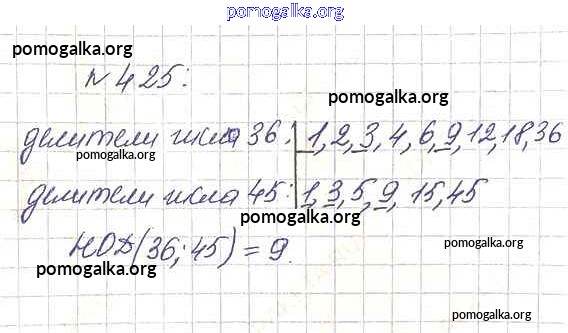 pomogalka.org
pomogalka.org
pomogalka.org
N 425:
pomogalka.org
делители числа 36: 1, 2, 3, 4, 6, 9, 12, 18, 36
pomogalka.org
делители числа 45: 1, 3, 5, 9, 15, 45
pomogalka.org
НОД(36; 45) = 9.
pomogalka.org
pomogalka.org
pomogalka.org